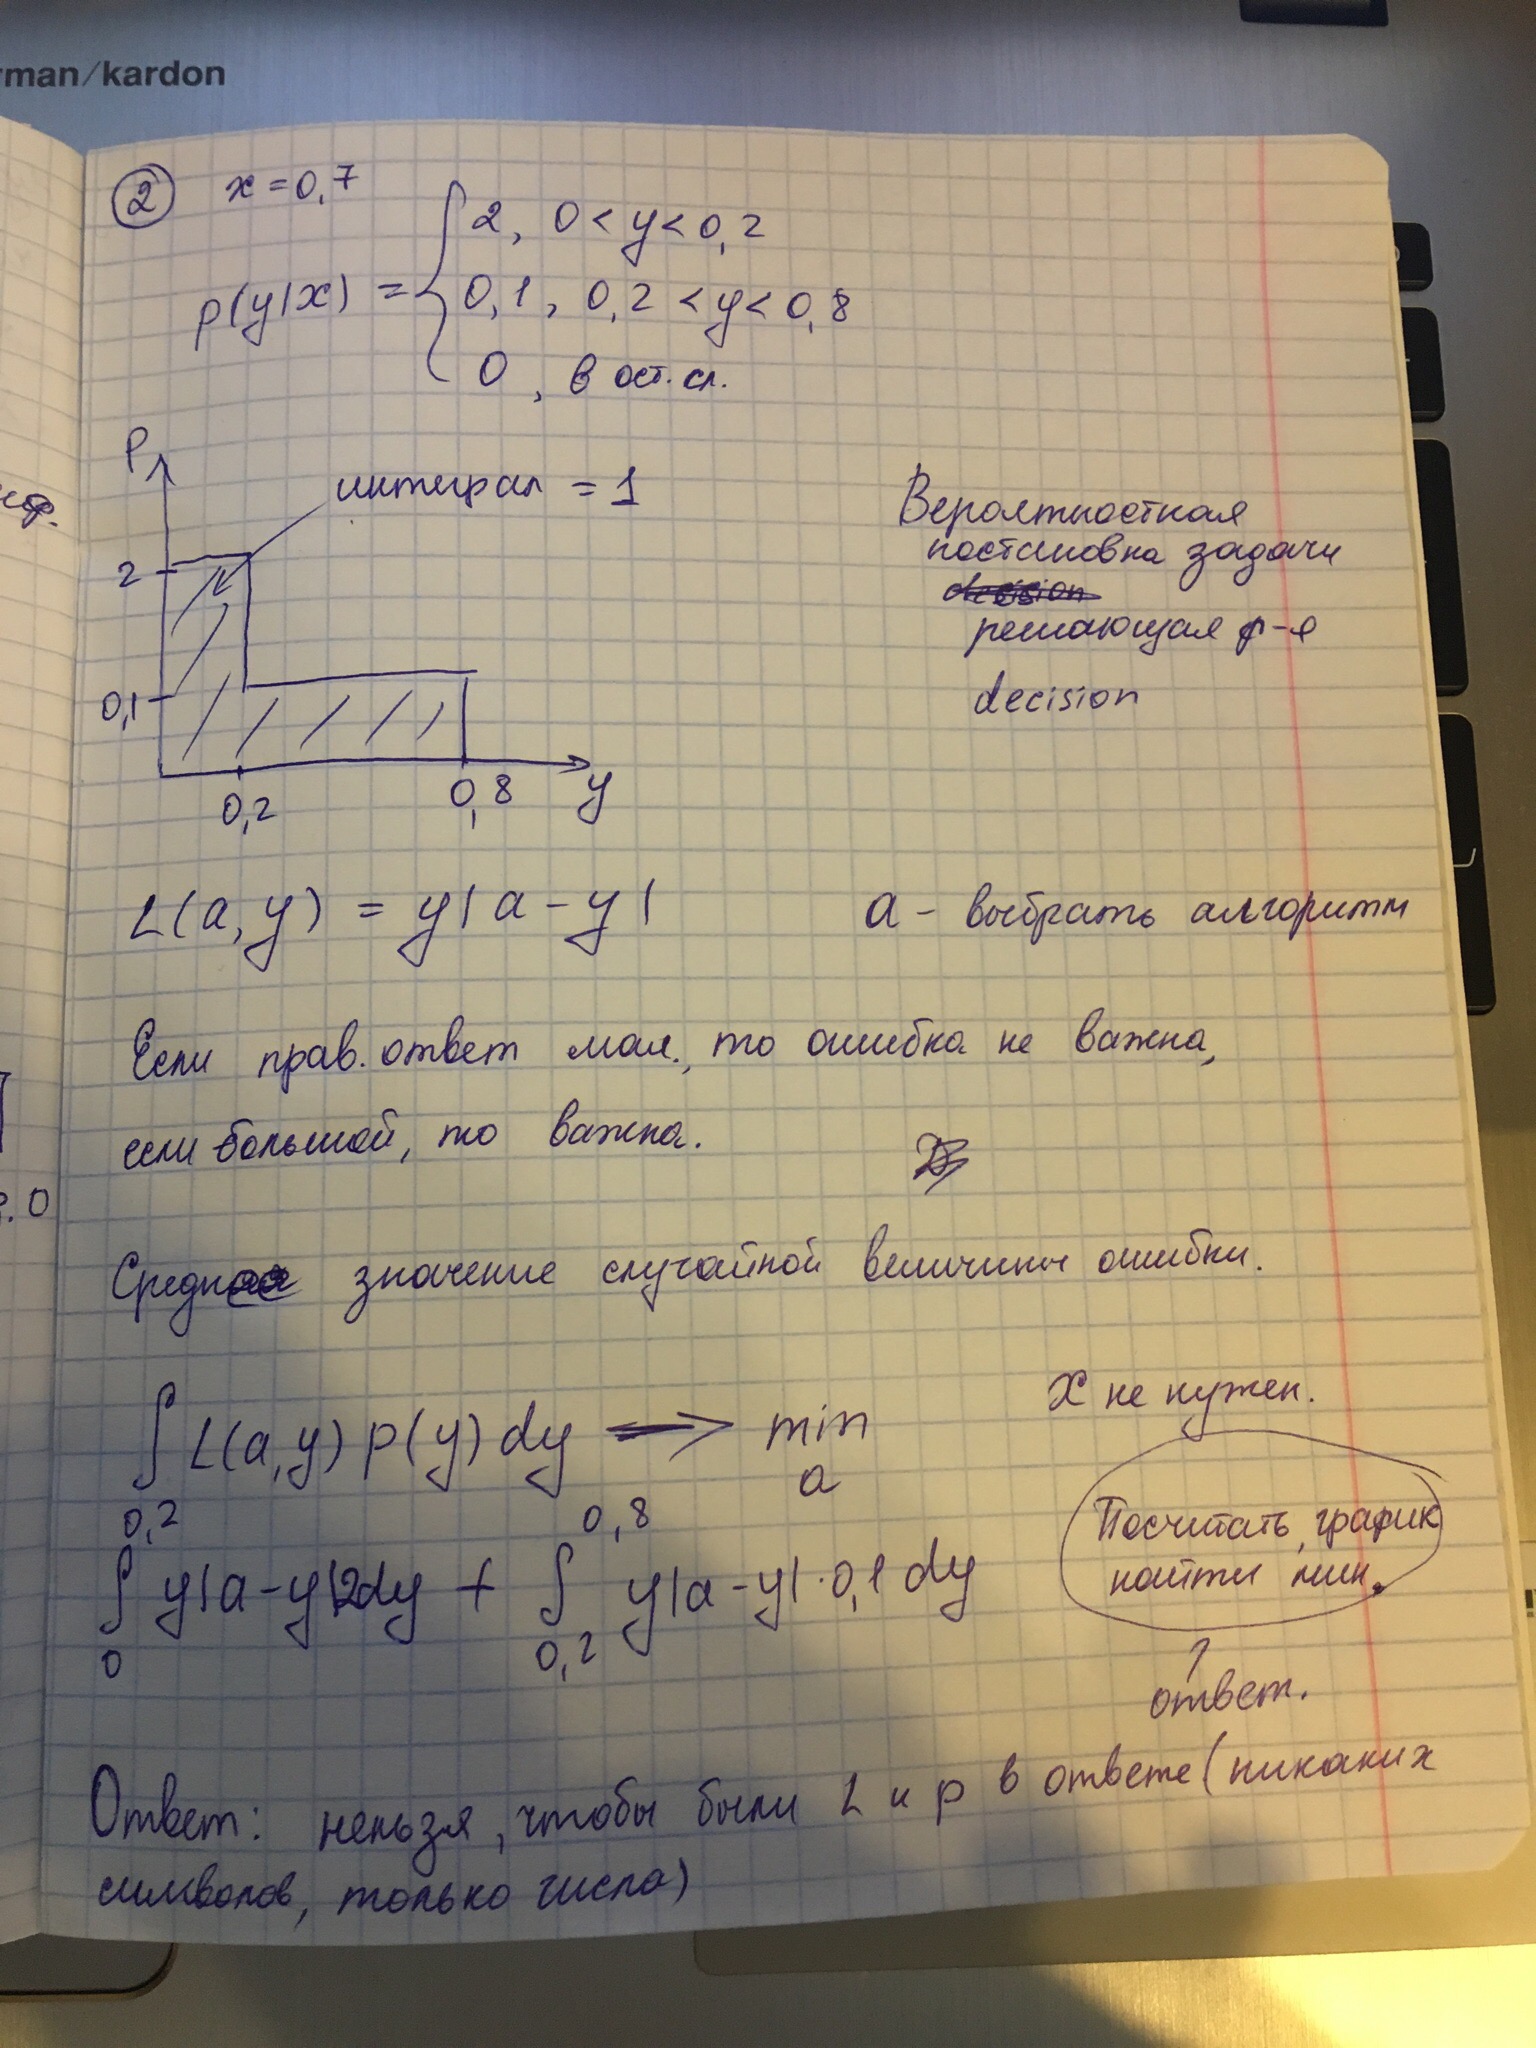 rman/kardon
② x = 0,7
p(y|x) = { 2, 0 < y < 0,2
0,1, 0,2 < y < 0,8
0, в ост. сл.
P
интеграл = 1
2
0,1
0,2
0,8
y
Вероятностная
постановка задачи
decision
решающая ф-я
decision
L(a, y) = y|a - y|
a - выбрать алгоритм
Если прав. ответ мал., то ошибка не важна,
если большой, то важна.
Среднее значение случайной величины ошибки.
x не нужен.
∫ L(a,y) p(y) dy ⟹ min
a
0,2 0,8
∫ y|a - y|2dy + ∫ y|a - y| · 0,1 dy
0 0,2
Посчитать, график
найти мин.
↑
ответ.
Ответ: нельзя, чтобы были L и p в ответе (никаких
символов, только числа)
. 0